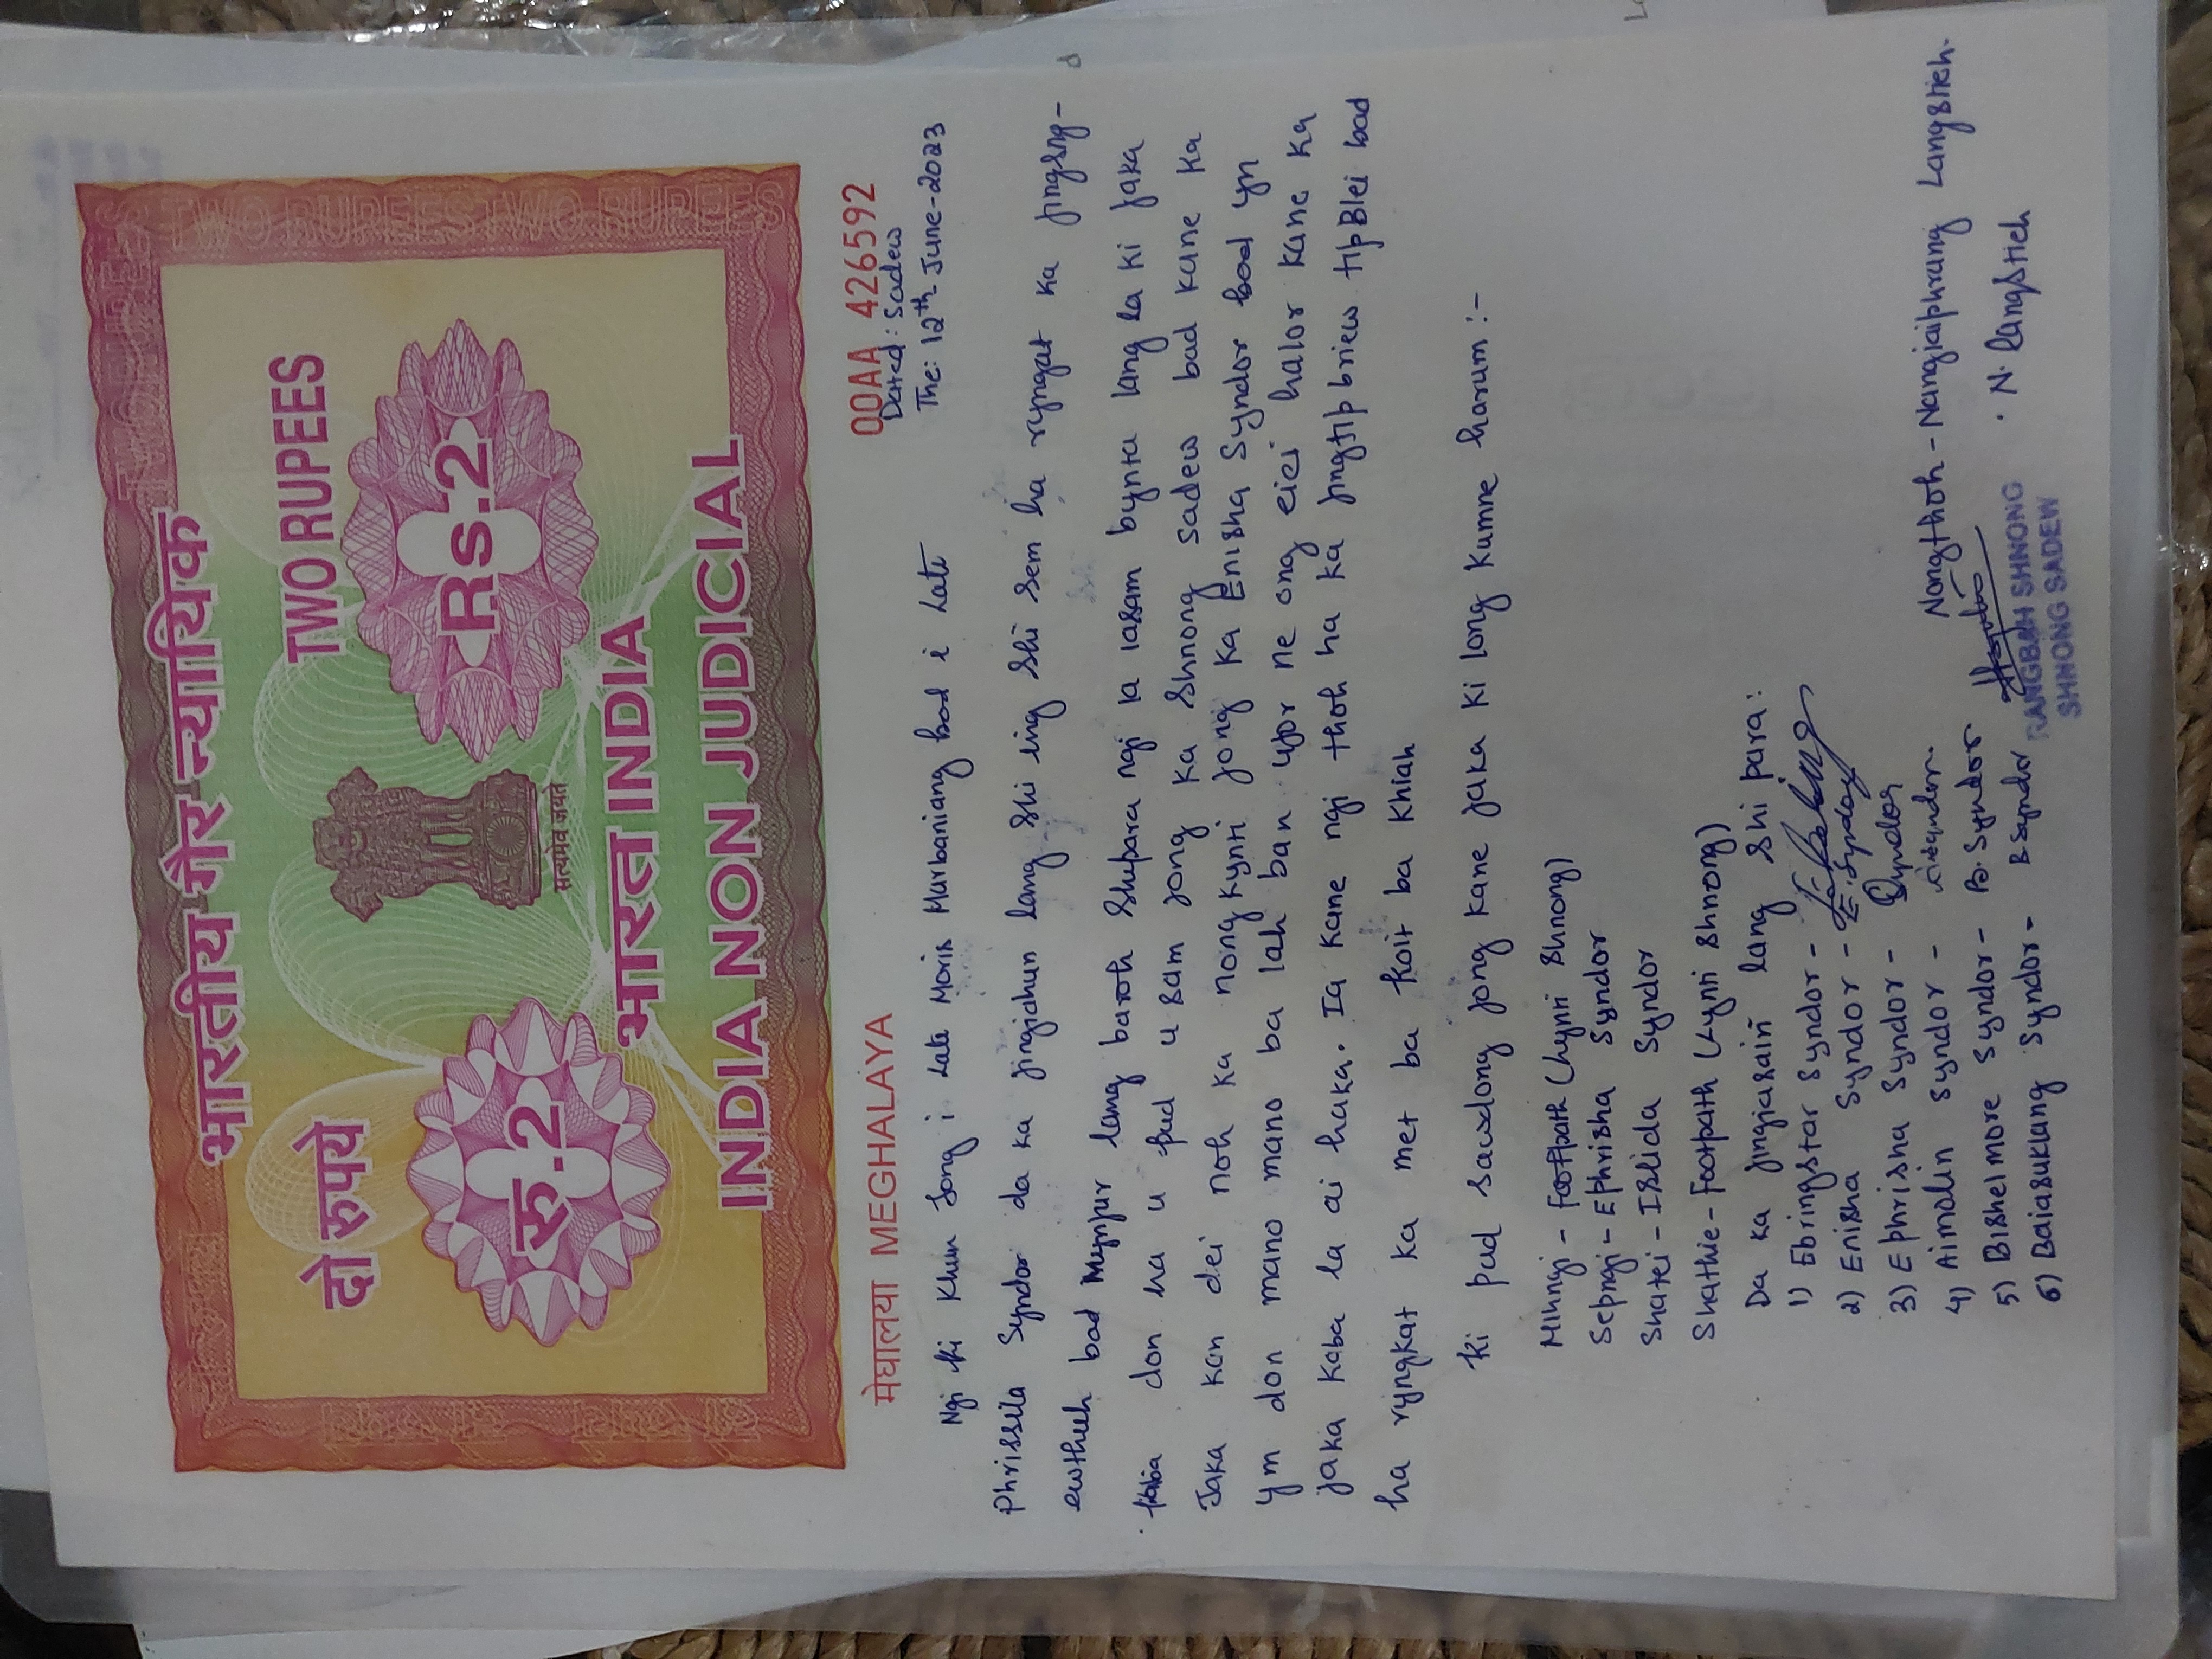 भारतीय गैर न्यायिक
दो रुपये
TWO RUPEES
रु.2
Rs.2
सत्यमेव जयते
भारत INDIA
INDIA NON JUDICIAL
मेघालया MEGHALAYA
00AA 426592
Dated: Sadew
The: 12th June-2023
Ngi ki Khun Jong i Late Moris Marbaniang bad i Late
Phrissila Syndor da ka jingiahun lang shi iing shi sem ha ryngat ka jingsng-
ewthuh bad Mynjur lang baroh shipara ngi ia iasam bynta lang ia ki jaka
kaba don ha u pud u sam jong ka Shnong Sadew bad kane ka
Jaka kan dei noh ka nongkynti jong ka Enisha Syndor bad yn
ym don mano mano ba lah ban ujor ne ong eiei halor kane ka
jaka kaba la ai haka. Ia kane ngi thoh ha ka jingtip briew tipBlei bad
ha ryngkat ka met ba koit ba khiah
ki pud sawdong jong kane jaka ki long kumne harum :-
Mihngi - Footpath (Kynti Shnong)
Sepngi - Ephrisha Syndor
Shatei - Islida Syndor
Shathie - Footpath (Kynti Shnong)
Da ka jingiasain lang shi para:
1) Ebringstar Syndor -
2) Enisha Syndor - E. Syndor
3) Ephrisha Syndor - Syndor
4) Aimolin Syndor -
5) Bishelmore Syndor - B. Syndor
6) Baiasuklang Syndor - B Syndor
Nongthoh - Nangiaiphrang Langstieh.
. N. Langstieh
RANGBAH SHNONG
SHNONG SADEW